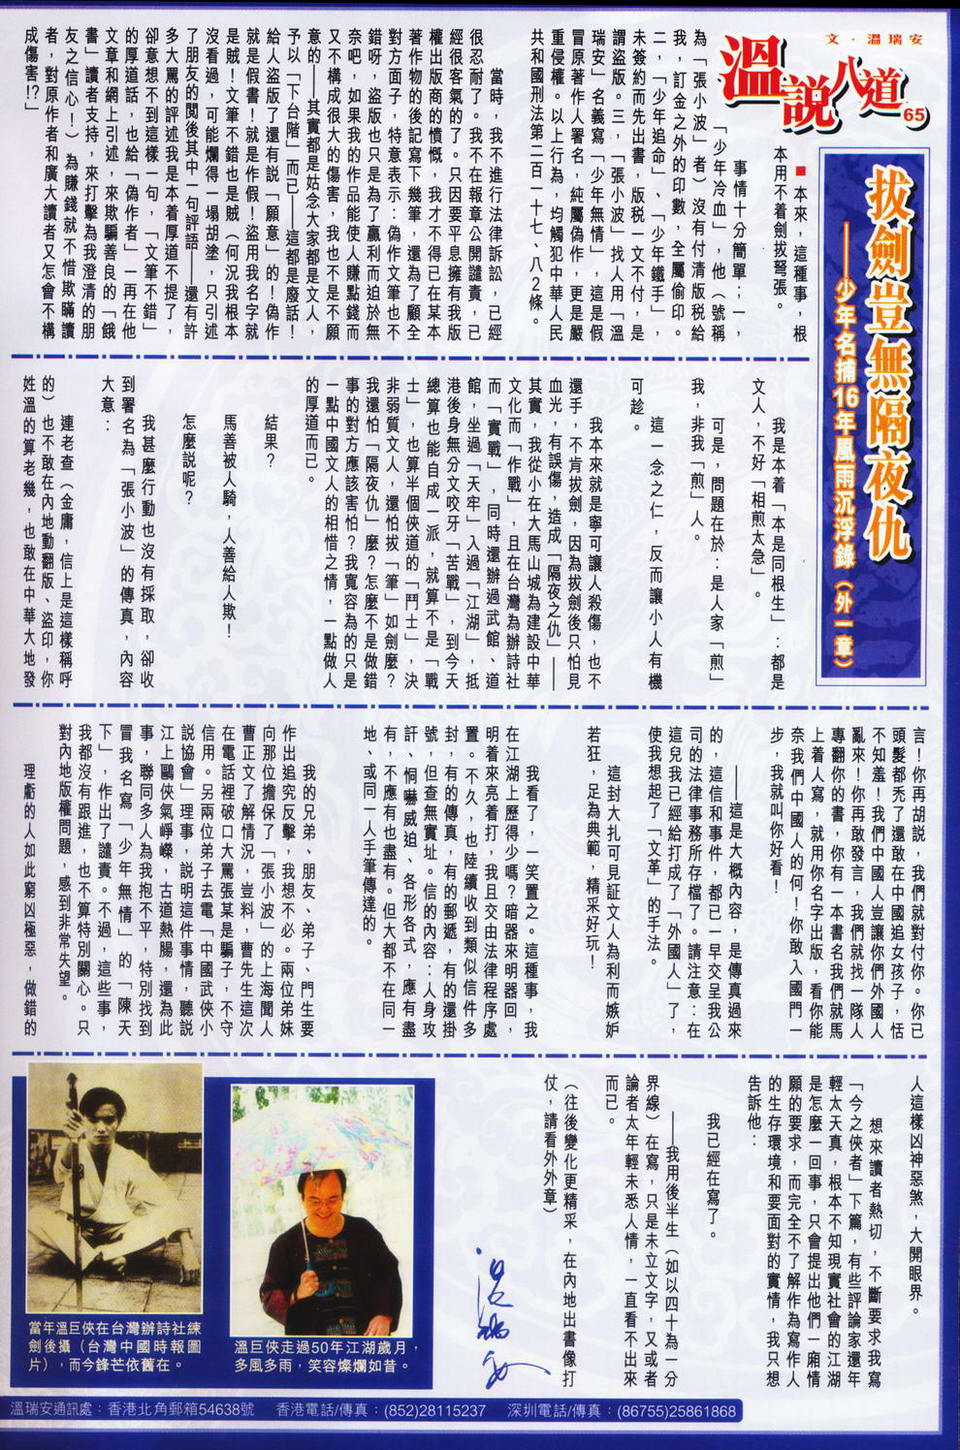 文·溫瑞安
溫說八道65
拔劍豈無隔夜仇
——少年名捕16年風雨沉浮錄（外一章）
■本來，這種事，根
本用不着劍拔弩張。
事情十分簡單；一，
「少年冷血」，他（號稱
為「張小波」者）沒有付清版稅給
我，訂金之外的印數，全屬偷印。
二，「少年追命」、「少年鐵手」，
未簽約而先出書，版稅一文不付，是
謂盜版。三，「張小波」找人用「溫
瑞安」名義寫「少年無情」，這是假
冒原著作人署名，純屬偽作，更是嚴
重侵權。以上行為，均觸犯中華人民
共和國刑法第二百一十七、八2條。
當時，我不進行法律訴訟，已經
很忍耐了。我不在報章公開譴責，已
經很客氣的了。只因要平息擁有我版
權出版商的憤慨，我才不得已在某本
著作物的後記寫下幾筆，還為了顧全
對方面子，特意表示：偽作文筆也不
錯呀，盜版也只是為了贏利而迫於無
奈吧，如果我的作品能使人賺點錢而
又不構成很大的傷害，我也不是不願
意的——其實都是姑念大家都是文人，
予以「下台階」而已——這都是廢話！
給人盜版了還有說「願意」的！偽作
就是假書！就是作假！盜用我名字就
是賊！文筆不錯也是賊（何況我根本
沒看過，可能爛得一塌胡塗，只引述
了朋友的閱後其中一句評語——還有許
多大罵的評述我是本着厚道不提了，
卻意想不到這樣一句，「文筆不錯」
的厚道話，也給「偽作者」一再在他
文章和網上引述，來欺騙善良的「餓
書」讀者支持，來打擊為我澄清的朋
友之信心！）為賺錢就不惜欺瞞讀
者，對原作者和廣大讀者又怎會不構
成傷害!?」
我是本着「本是同根生」：都是
文人，不好「相煎太急」。
可是，問題在於：是人家「煎」
我，非我「煎」人。
這一念之仁，反而讓小人有機
可趁。
我本來就是寧可讓人殺傷，也不
還手，不肯拔劍，因為拔劍後只怕見
血光，有誤傷，造成「隔夜之仇」——
其實，我從小在大馬山城為建設中華
文化而「作戰」，且在台灣為辦詩社
而「實戰」，同時還辦過武館、道
館，坐過「天牢」入過「江湖」，抵
港後身無分文咬牙「苦戰」，到今天
總算也能自成一派，就算不是「戰
士」，也算半個俠道的「鬥士」，決
非弱質文人，還怕拔「筆」如劍麼？
我還怕「隔夜仇」麼？怎麼不是做錯
事的對方應該害怕？我寬容為的只是
一點中國文人的相惜之情，一點做人
的厚道而已。
結果？
馬善被人騎，人善給人欺！
怎麼說呢？
我甚麼行動也沒有採取，卻收
到署名為「張小波」的傳真，內容
大意：
連老查（金庸，信上是這樣稱呼
的）也不敢在內地動翻版、盜印，你
姓溫的算老幾，也敢在中華大地發
言！你再胡說，我們就對付你。你已
頭髮都禿了還敢在中國追女孩子，恬
不知羞！我們中國人豈讓你們外國人
亂來！你再敢發言，我們就找一隊人
專翻你的書，你有一本書名我們就馬
上着人寫，就用你名字出版，看你能
奈我們中國人的何！你敢入國門一
步，我就叫你好看！
——這是大概內容，是傳真過來
的，這信和事件，都已一早交呈我公
司的法律事務所存檔了。請注意：在
這兒我已經給打成了「外國人」了，
使我想起了「文革」的手法。
這封大扎可見証文人為利而嫉妒
若狂，足為典範，精采好玩！
我看了，一笑置之。這種事，我
在江湖上歷得少嗎？暗器來明器回，
明着來亮着打，我且交由法律程序處
置。不久，也陸續收到類似信件多
封，有的傳真，有的郵遞，有的還掛
號，但查無實址。信的內容：人身攻
訐、恫嚇威迫、各形各式，應有盡
有，不應有也盡有。但大都不在同一
地、或同一人手筆傳達的。
我的兄弟、朋友、弟子、門生要
作出追究反擊，我想不必。兩位弟妹
向那位擔保了「張小波」的上海聞人
曹正文了解情況，豈料，曹先生這次
在電話裡破口大罵張某是騙子，不守
信用。另兩位弟子去電「中國武俠小
說協會」理事，説明這件事情，聽說
江上鷗俠氣崢嶸，古道熱腸，還為此
事，聯同多人為我抱不平，特別找到
冒我名寫「少年無情」的「陳天
下」，作出了譴責。不過，這些事，
我都沒有跟進，也不算特別關心。只
對內地版權問題，感到非常失望。
理虧的人如此窮凶極惡，做錯的
人這樣凶神惡煞，大開眼界。
想來讀者熱切，不斷要求我寫
「今之俠者」下篇，有些評論家還年
輕太天真，根本不知現實社會的江湖
是怎麼一回事，只會提出他們一廂情
願的要求，而完全不了解作為寫作人
的生存環境和要面對的實情，我只想
告訴他：
我已經在寫了。
——我用後半生（如以四十為一分
界線）在寫，只是未立文字，又或者
論者太年輕未悉人情，一直看不出來
而已。
（往後變化更精采，在內地出書像打
仗，請看外外章）
溫瑞安
當年溫巨俠在台灣辦詩社練
劍後攝（台灣中國時報圖
片），而今鋒芒依舊在。
溫巨俠走過50年江湖歲月，
多風多雨，笑容燦爛如昔。
溫瑞安通訊處：香港北角郵箱54638號　香港電話/傳真：(852)28115237　深圳電話/傳真：(86755)25861868